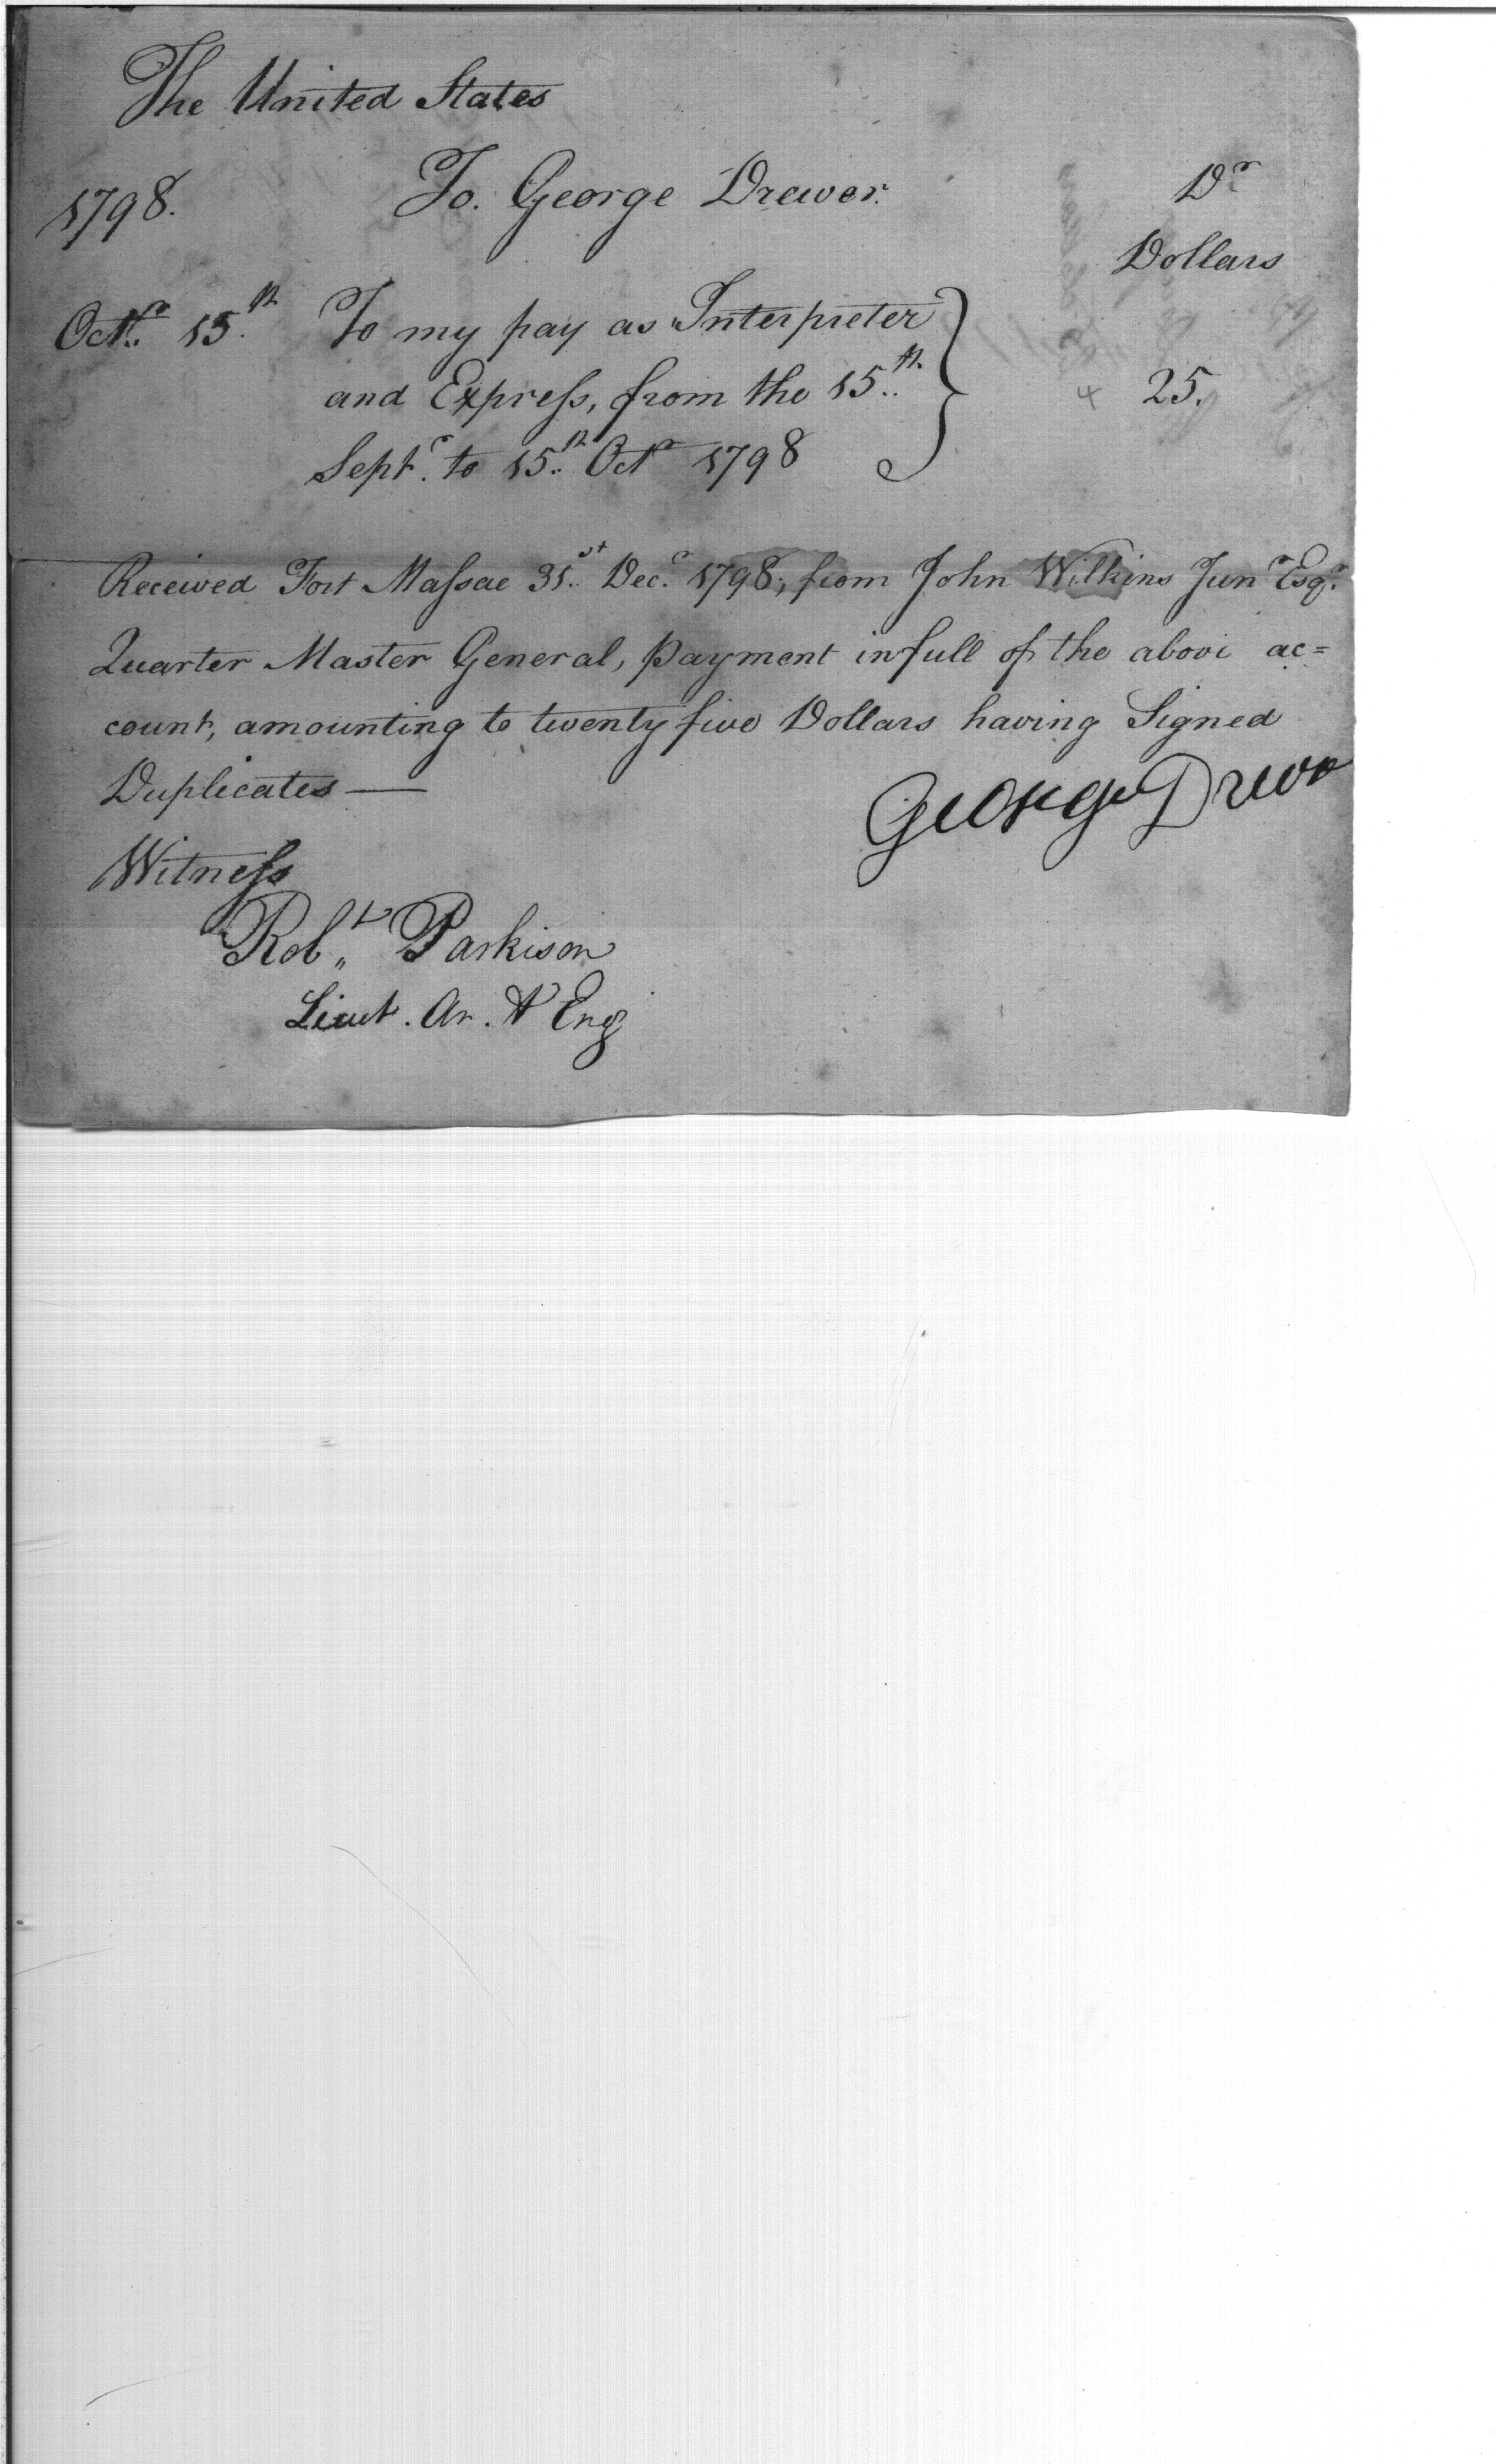 The United States
1798. To. George Drewer. Dr
Dollars
Octr. 15th To my pay as Interpreter
and Express, from the 15th
Septr. to 15th Octr 1798 25.
Received Fort Massac 31st Decr. 1798, from John Wilkins Junr Esqr.
Quarter Master General, payment in full of the above ac=
count, amounting to twenty five Dollars having Signed
Duplicates —
George Drewr
Witness
Robt Parkison
Lieut. Ar. & Eng